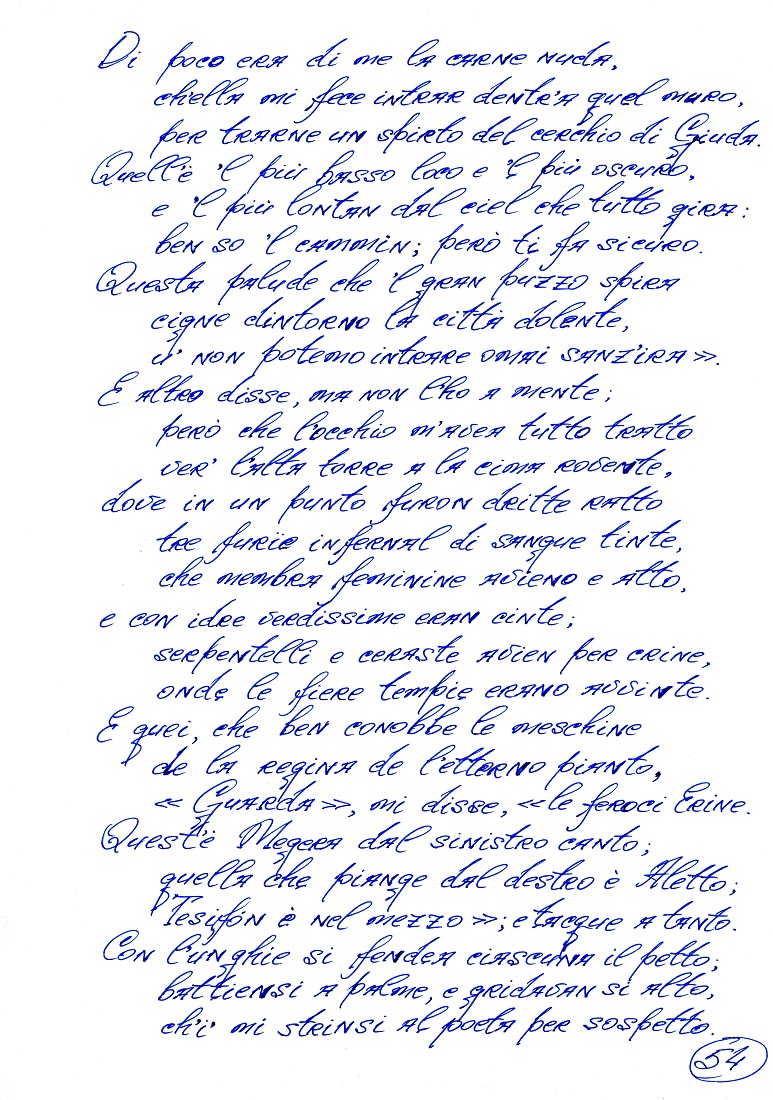 Di poco era di me la carne nuda,
ch'ella mi fece intrar dentr'a quel muro,
per trarne un spirto del cerchio di Giuda.
Quell'è 'l più basso loco e 'l più oscuro,
e 'l più lontan dal ciel che tutto gira:
ben so 'l cammin; però ti fa sicuro.
Questa palude che 'l gran puzzo spira
cigne dintorno la città dolente,
u' non potemo intrare omai sanz'ira».
E altro disse, ma non l'ho a mente;
però che l'occhio m'avea tutto tratto
ver' l'alta torre a la cima rovente,
dove in un punto furon dritte ratto
tre furie infernal di sangue tinte,
che membra feminine avieno e atto,
e con idre verdissime eran cinte;
serpentelli e ceraste avien per crine,
onde le fiere tempie erano avvinte.
E quei, che ben conobbe le meschine
de la regina de l'etterno pianto,
«Guarda», mi disse, «le feroci Erine.
Quest'è Megera dal sinistro canto;
quella che piange dal destro è Aletto;
Tesifón è nel mezzo»; e tacque a tanto.
Con l'unghie si fendea ciascuna il petto;
battiensi a palme, e gridavan sì alto,
ch'i' mi strinsi al poeta per sospetto.
54